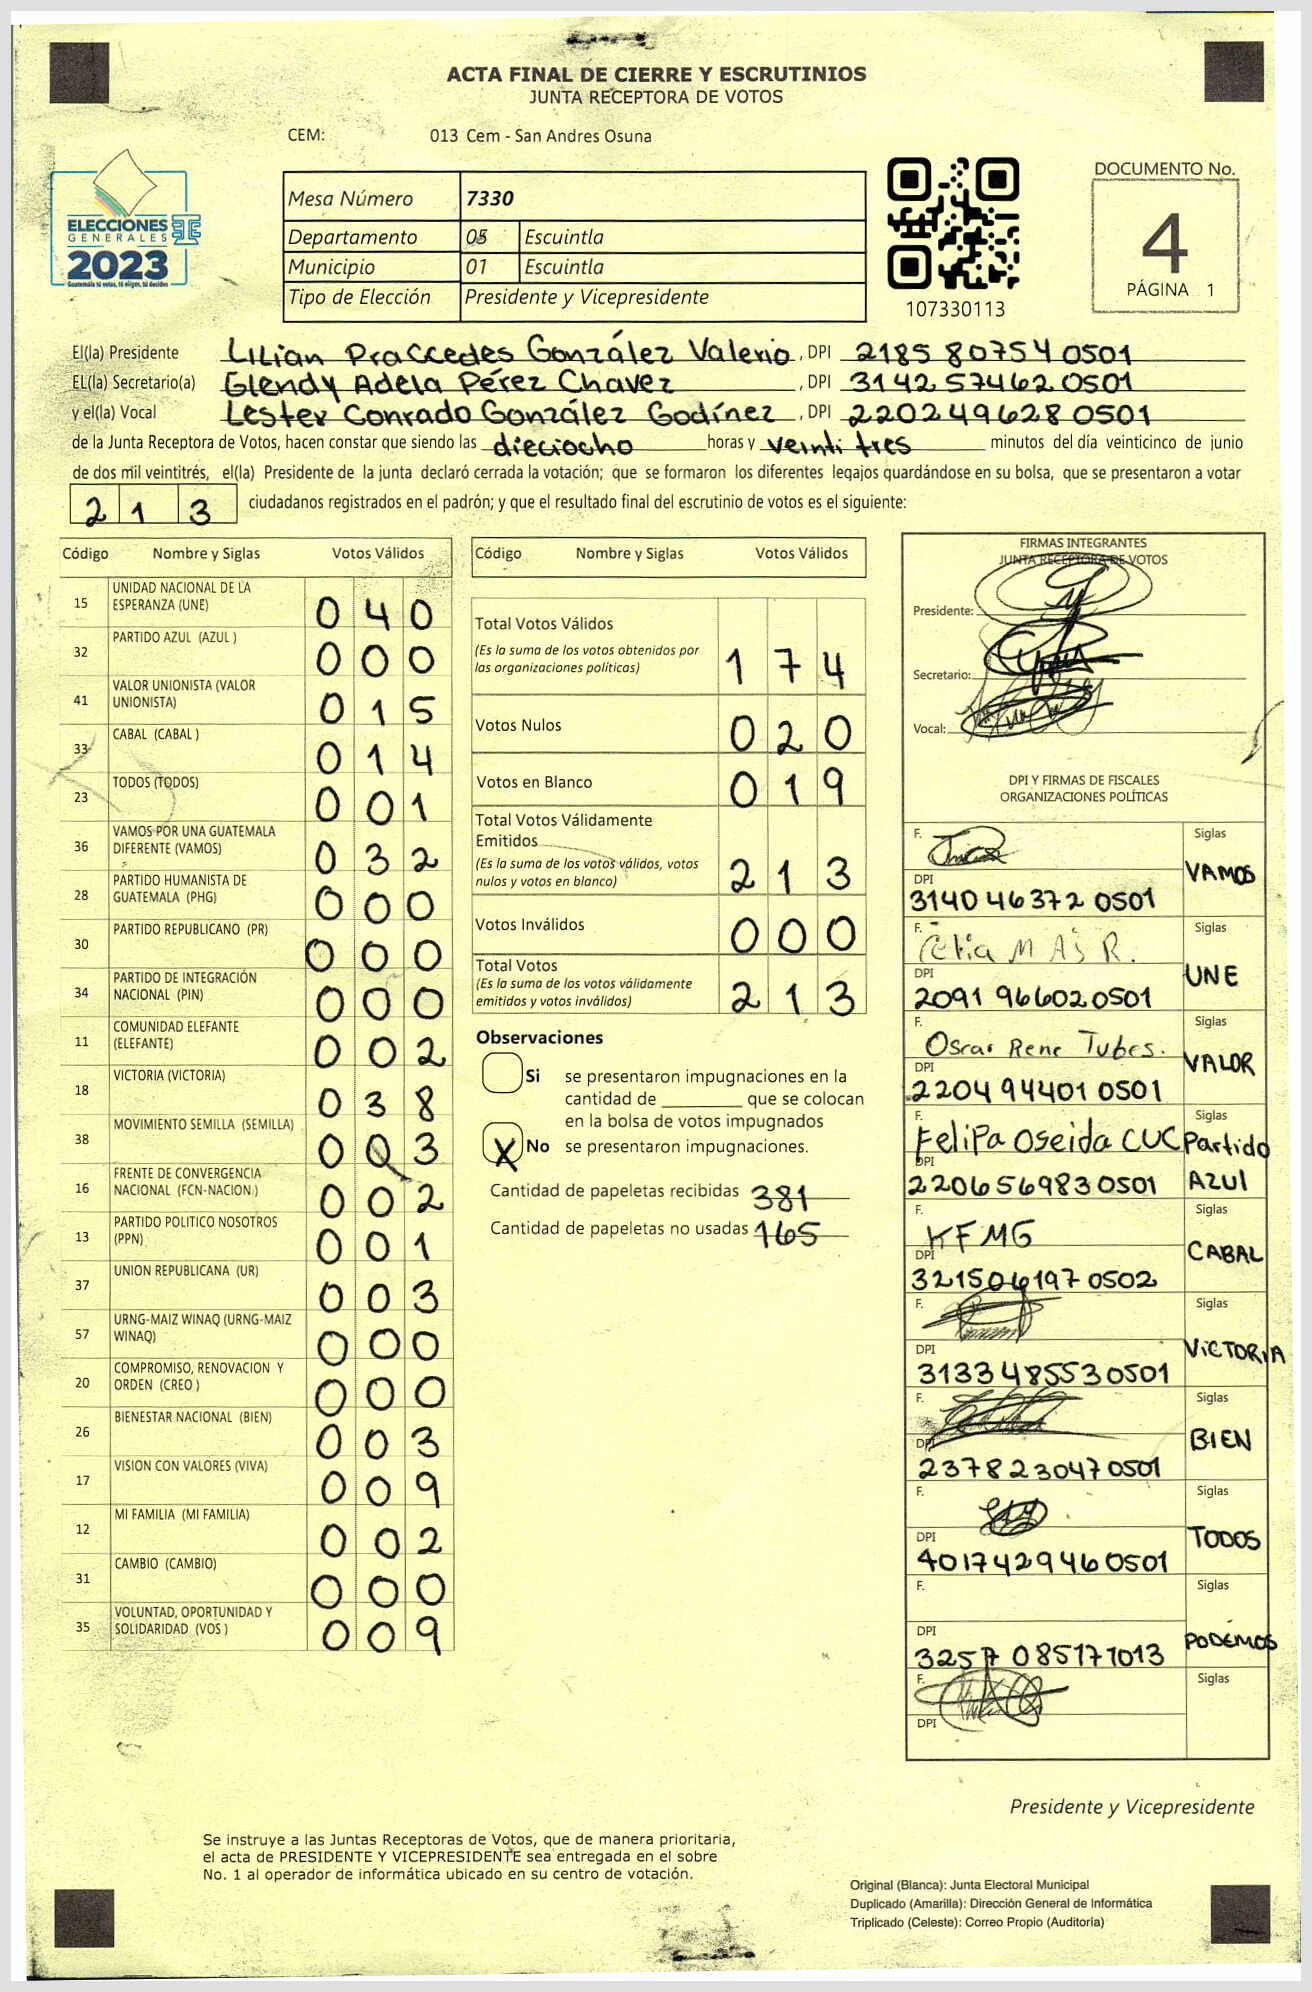 ACTA FINAL DE CIERRE Y ESCRUTINIOS
JUNTA RECEPTORA DE VOTOS
CEM: 013 Cem - San Andres Osuna
ELECCIONES
GENERALES
2023
Guatemala tú votas, tú eliges, tú decides
Mesa Número 7330
Departamento 05 Escuintla
Municipio 01 Escuintla
Tipo de Elección Presidente y Vicepresidente
107330113
DOCUMENTO No.
4
PÁGINA 1
El(la) Presidente Lilian Praccedes González Valerio, DPI 2185 80754 0501
EL(la) Secretario(a) Glendy Adela Pérez Chavez, DPI 3142 57462 0501
y el(la) Vocal Lester Conrado González Godínez, DPI 2202 49628 0501
de la Junta Receptora de Votos, hacen constar que siendo las dieciocho horas y veinti tres minutos del día veinticinco de junio
de dos mil veintitrés, el(la) Presidente de la junta declaró cerrada la votación; que se formaron los diferentes legajos guardándose en su bolsa, que se presentaron a votar
2 1 3 ciudadanos registrados en el padrón; y que el resultado final del escrutinio de votos es el siguiente:
Código Nombre y Siglas Votos Válidos
15 UNIDAD NACIONAL DE LA ESPERANZA (UNE) 0 4 0
32 PARTIDO AZUL (AZUL ) 0 0 0
41 VALOR UNIONISTA (VALOR UNIONISTA) 0 1 5
33 CABAL (CABAL ) 0 1 4
23 TODOS (TODOS) 0 0 1
36 VAMOS POR UNA GUATEMALA DIFERENTE (VAMOS) 0 3 2
28 PARTIDO HUMANISTA DE GUATEMALA (PHG) 0 0 0
30 PARTIDO REPUBLICANO (PR) 0 0 0
34 PARTIDO DE INTEGRACIÓN NACIONAL (PIN) 0 0 0
11 COMUNIDAD ELEFANTE (ELEFANTE) 0 0 2
18 VICTORIA (VICTORIA) 0 3 8
38 MOVIMIENTO SEMILLA (SEMILLA) 0 0 3
16 FRENTE DE CONVERGENCIA NACIONAL (FCN-NACION) 0 0 2
13 PARTIDO POLITICO NOSOTROS (PPN) 0 0 1
37 UNION REPUBLICANA (UR) 0 0 3
57 URNG-MAIZ WINAQ (URNG-MAIZ WINAQ) 0 0 0
20 COMPROMISO, RENOVACION Y ORDEN (CREO ) 0 0 0
26 BIENESTAR NACIONAL (BIEN) 0 0 3
17 VISION CON VALORES (VIVA) 0 0 9
12 MI FAMILIA (MI FAMILIA) 0 0 2
31 CAMBIO (CAMBIO) 0 0 0
35 VOLUNTAD, OPORTUNIDAD Y SOLIDARIDAD (VOS ) 0 0 9
Código Nombre y Siglas Votos Válidos
Total Votos Válidos
(Es la suma de los votos obtenidos por
las organizaciones políticas) 1 7 4
Votos Nulos 0 2 0
Votos en Blanco 0 1 9
Total Votos Válidamente
Emitidos
(Es la suma de los votos válidos, votos
nulos y votos en blanco) 2 1 3
Votos Inválidos 0 0 0
Total Votos
(Es la suma de los votos válidamente
emitidos y votos inválidos) 2 1 3
Observaciones
Si se presentaron impugnaciones en la
cantidad de ________ que se colocan
en la bolsa de votos impugnados
X No se presentaron impugnaciones.
Cantidad de papeletas recibidas 381
Cantidad de papeletas no usadas 165
FIRMAS INTEGRANTES
JUNTA RECEPTORA DE VOTOS
Presidente:
Secretario:
Vocal:
DPI Y FIRMAS DE FISCALES
ORGANIZACIONES POLÍTICAS
F. Siglas
VAMOS
DPI
3140 46372 0501
F. Siglas
UNE
DPI
2091 96602 0501
F. Oscar Rene Tubes. Siglas
VALOR
DPI
2204 94401 0501
F. Felipa Oseida CUC Siglas
Partido
AZUl
DPI
2206569830501
F. KFMG Siglas
CABAL
DPI
321506197 0502
F. Siglas
VICTORIA
DPI
3133 48553 0501
F. Siglas
BIEN
DPI
2378 23047 0501
F. Siglas
TODOS
DPI
4017429460501
F. Siglas
PODEMOS
DPI
3257 085171013
F. Siglas
DPI
Presidente y Vicepresidente
Se instruye a las Juntas Receptoras de Votos, que de manera prioritaria,
el acta de PRESIDENTE Y VICEPRESIDENTE sea entregada en el sobre
No. 1 al operador de informática ubicado en su centro de votación.
Original (Blanca): Junta Electoral Municipal
Duplicado (Amarilla): Dirección General de Informática
Triplicado (Celeste): Correo Propio (Auditoria)